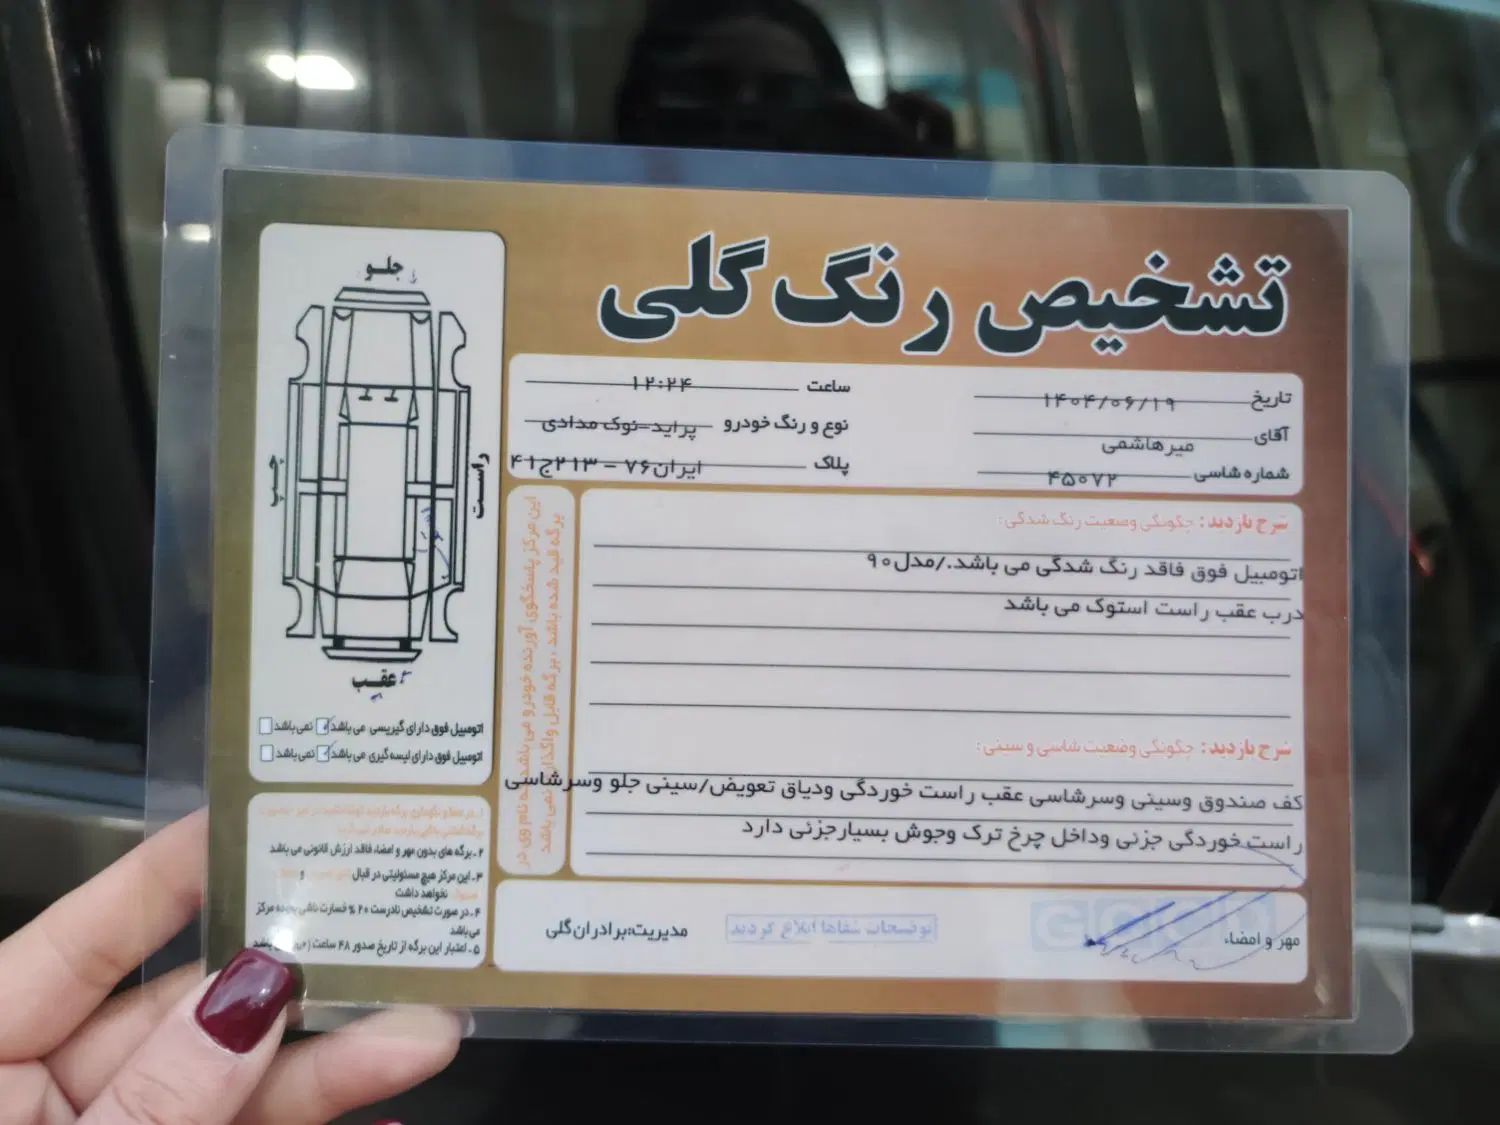 تشخیص رنگ گلی
تاریخ ۱۴۰۴/۰۶/۱۹
ساعت ۱۲:۲۴
آقای میرهاشمی
نوع و رنگ خودرو پراید-نوک مدادی
شماره شاسی ۴۵۰۷۲
پلاک ایران۷۶ - ۲۱۳ج۴۱
شرح بازدید: چگونگی وضعیت رنگ شدگی:
اتومبیل فوق فاقد رنگ شدگی می باشد./مدل۹۰
درب عقب راست استوک می باشد
شرح بازدید: چگونگی وضعیت شاسی و سینی:
کف صندوق وسینی وسرشاسی عقب راست خوردگی ودیاق تعویض/سینی جلو وسرشاسی
راست خوردگی جزئی وداخل چرخ ترک وجوش بسیارجزئی دارد
مهر و امضاء
توضیحات شفاها ابلاغ گردید
مدیریت:برادران گلی
این مرکز پاسخگوی آورنده خودرو می باشد که نام وی در
برگه قید شده باشد ، برگه قابل واگذاری نمی باشد
جلو
راست
چپ
عقب
اتومبیل فوق دارای گیریسی می باشد نمی باشد
اتومبیل فوق دارای لیسه گیری می باشد نمی باشد
۲ـ برگه های بدون مهر و امضاء فاقد ارزش قانونی می باشد
۳ـ این مرکز هیچ مسئولیتی در قبال و
نخواهد داشت
۴ـ در صورت تشخیص نادرست ۲۰ % خسارت ناشی بعهده مرکز
می باشد
۵ـ اعتبار این برگه از تاریخ صدور ۴۸ ساعت باشد